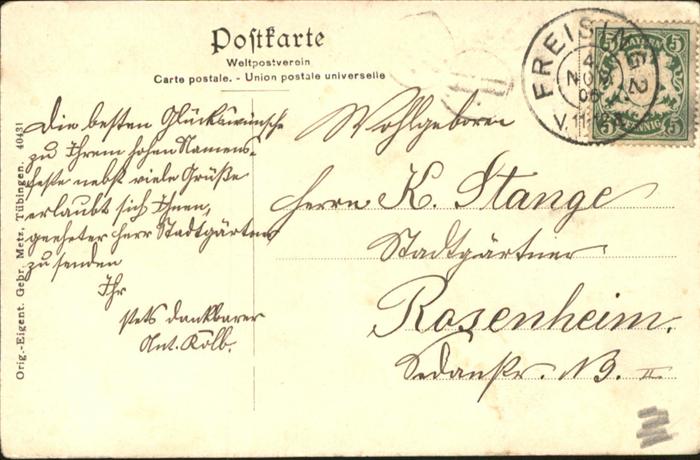 Postkarte
Weltpostverein
Carte postale. - Union postale universelle
FREISING 2
4
NOV
06
V. 11-12
BAYERN
5 5
5 PFENNIG 5
Die besten Glückwünsche
zu Ihrem hohen Namens-
feste nebst viele Grüße
erlaubt sich Ihnen,
geehrter Herr Stadtgärtner
zu senden
Ihr
stets dankbarer
Ant. Kolb.
Wohlgeboren
Herrn K. Stange
Stadtgärtner
Rosenheim.
Sedanstr. II
Orig.-Eigent. Gebr. Metz, Tübingen. 40431